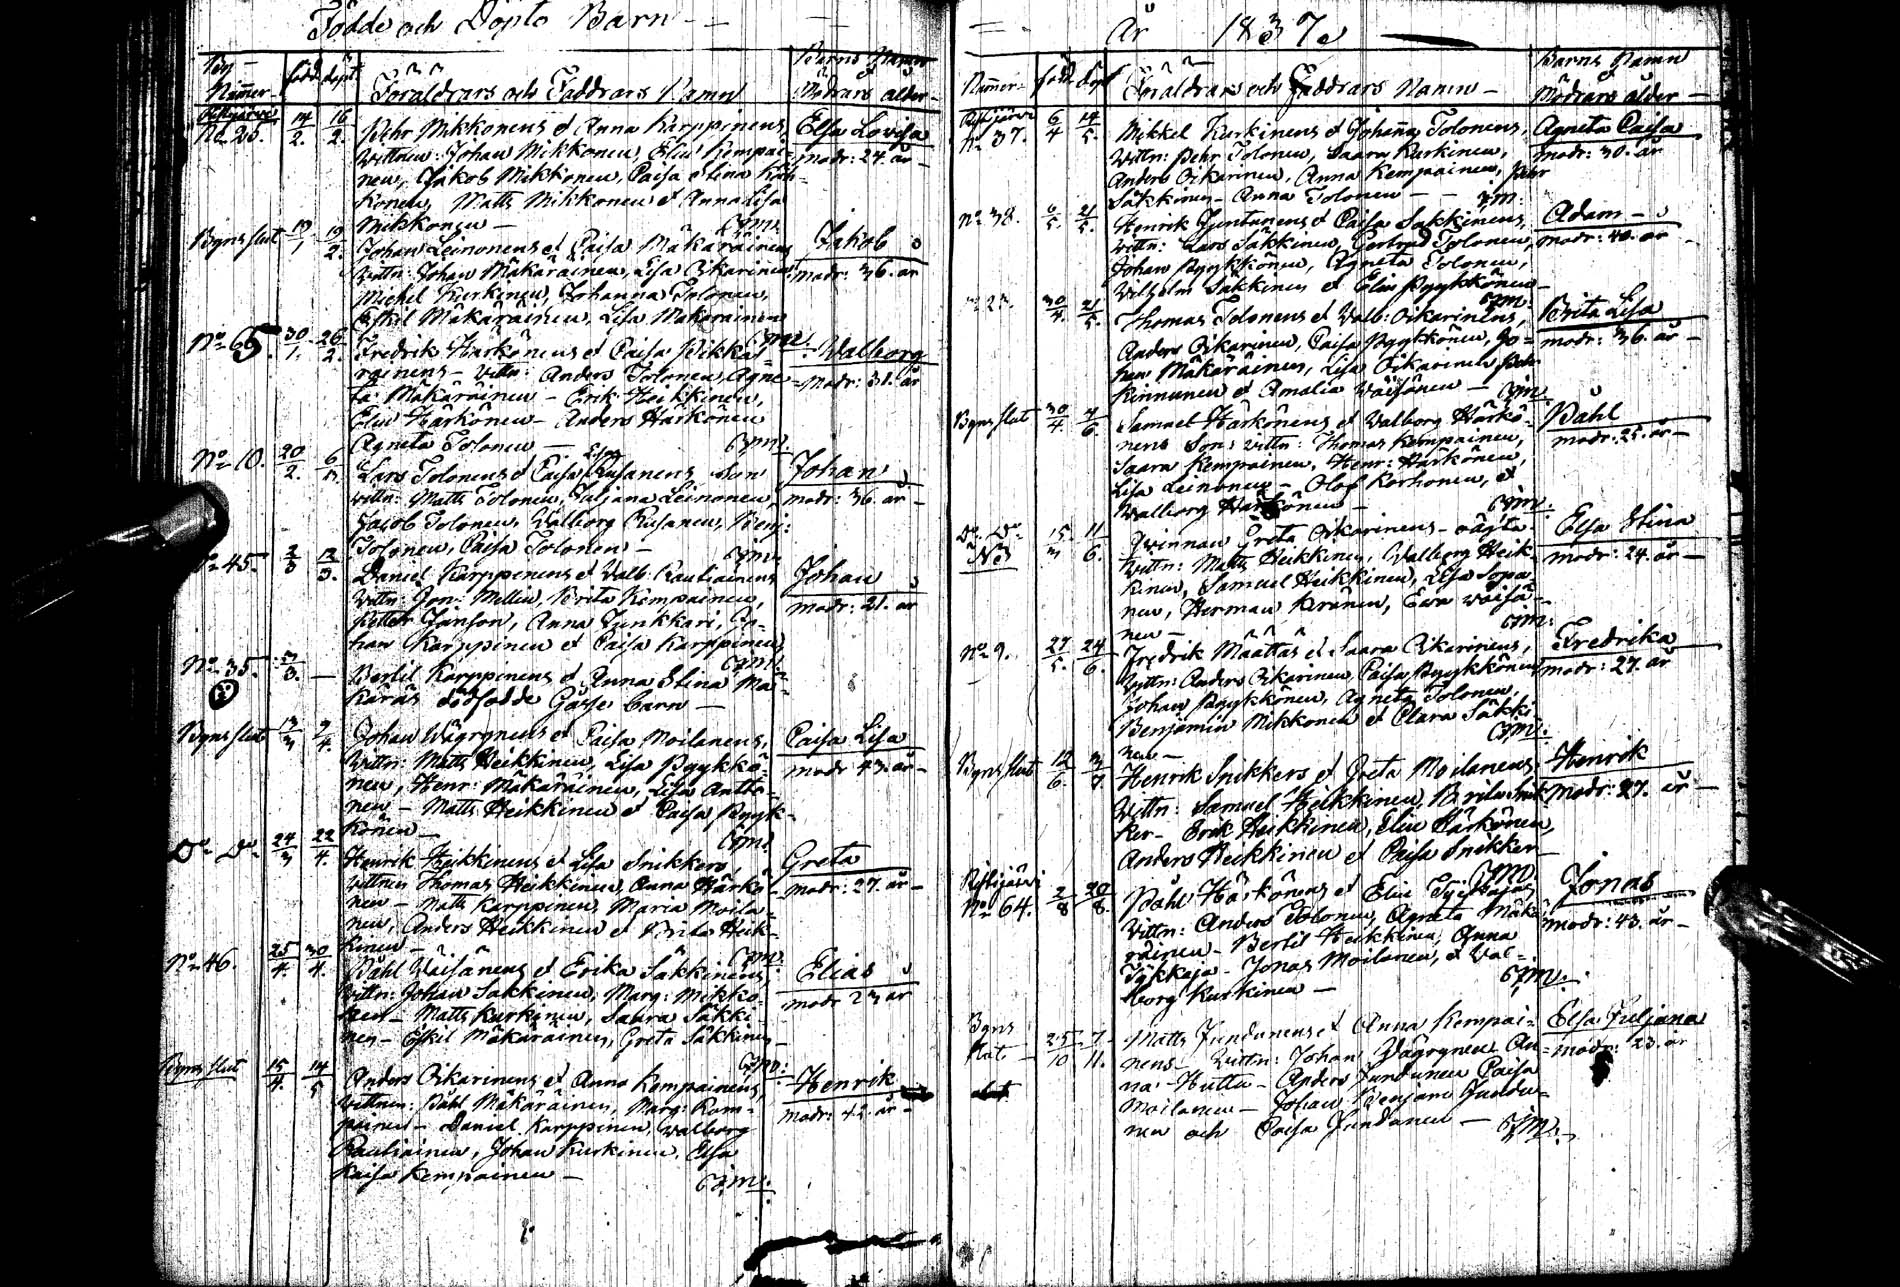 Födde och Döpte Barn
By
Nummer
född döpt
Föräldrars och Faddrars Namn
Barns Namn
Modrars ålder
No 20. 14/2. 16/2.
Pehr Mikkonens et Anna Karppinens
Wittnen: Johan Mikkonen, Elin Kempai-
nen, Jakob Mikkonen, Caisa Stina
konen, Matts Mikkonen et Anna Lisa
Mikkonen —
Elsa Lovisa
modr: 24. år
Byns slut 19/1 19/2.
Johan Leinonens et Caisa Mäkäräinens
Wittn: Johan Mäkäräinen, Lisa Oikarinen
Michel Kurkinen, Johanna Tolonen,
Eskil Mäkäräinen, Lisa Mäkäräinen
Jakob
modr: 36. år
No 65. 30/1. 26/2.
Fredrik Härkönens et Caisa Pikka
rainens — Vittn: Anders Tolonen, Agne-
ta Mäkäräinen — Erik Heikkinen,
Elin Härkönen — Anders Härkönen
Agneta Tolonen —
Walborg
modr: 31. år
No 10. 20/2. 6/3.
Lars Tolonens et Caisa Rusanens son
Wittn: Matts Tolonen, Juljana Leinonen,
Jacob Tolonen, Walborg Rusanen, Benj:
Tolonen, Caisa Tolonen —
Johan
modr: 36. år
No 45. 2/3 12/3.
Daniel Karppinens et Valb: Rautiainens
Vittn: Jon: Mellin, Brita Kempainen,
Petter Janson, Anna Junkkari, Jo-
han Karppinen et Caisa Karppinen
Johan
modr: 21. år
No 35. 5/3. —
Bertil Karppinens et Anna Stina Mä-
käräs dödfödde Gosse barn —
Byns slut 13/3 9/4.
Johan Wägrynens et Caisa Moilanens,
Wittn: Matts Heikkinen, Lisa Pyykkö-
nen, Henr: Mäkäräinen, Lisa Antto-
nen — Matts Heikkinen et Caisa Pyyk-
könen —
Caisa Lisa
modr 43. år
Do Do 24/3 22/4.
Henrik Heikkinens et Lisa Snikkers
Vittnen Thomas Heikkinen, Anna Härkö-
nen — Matts Karppinen, Maria Moila-
nen, Anders Heikkinen et Brita Heik-
kinen —
Greta
modr: 27. år
No 46. 25/4. 30/4.
Påhl Väisänens et Erika Säkkinens,
Wittn: Johan Säkkinen, Marg: Mikko-
nen — Matts Kurkinen, Saara Säkki-
nen — Eskil Mäkäräinen, Greta Säkkinen
Elias
modr 23 år
Byns slut 15/4. 14/5
Anders Oikarinens et Anna Kempainens,
Wittnen: Påhl Mäkäräinen, Marg: Kem-
painen — Daniel Karppinen, Walborg
Rautiainen, Johan Kurkinen, Elsa
Kaisa Kempainen —
Henrik
modr: 42. år
År 1837
Nummer
född döpt
Föräldrars och Faddrars Namn —
Barns Namn
Modrars ålder —
No 37. 6/4 14/5.
Mikkel Kurkinens et Johanna Tolonens,
Wittn: Pehr Tolonen, Saara Kurkinen,
Anders Oikarinen, Anna Kempainen, Pehr
Säkkinen — Anna Tolonen —
Agneta Caisa
modr: 30. år
No 38. 6/5. 21/5.
Henrik Juntunens et Caisa Säkkinens,
Wittn: Lars Säkkinen, Gertrud Tolonen,
Johan Pyykkönen, Agneta Tolonen,
Wilhelm Säkkinen et Elin Pyykkönen —
Adam
modr: 40. år
30/4. 21/5.
Thomas Tolonens et Valb: Oikarinens,
Anders Oikarinen, Caisa Pyykkönen, Jo-
han Mäkäräinen, Lisa Oikarinen Pehr
Kinnunen et Amalia Väisänen —
Brita Lisa
modr: 36. år
Byns slut 30/4 4/6.
Samuel Härkönens et Walborg Härkö-
nens Son: Vittn: Thomas Kempainen,
Saara Kempainen, Henr: Härkönen,
Lisa Leinonen — Olof Korhonen, et
Walborg Härkönen —
Påhl
modr: 25. år —
Do Do 15/3 11/6.
Qvinnan Greta Oikarinens — oägta
Vittn: Matts Heikkinen, Walborg Heik-
kinen, Samuel Heikkinen, Lisa Sopa-
nen, Herman Keränen, Ewa Väisä-
nen —
Elsa Stina
modr: 24. år —
No 9. 27/5. 24/6.
Fredrik Määttäs et Saara Oikarinens,
Vittn: Anders Oikarinen, Caisa Pyykkönen
Johan Pyykkönen, Agneta Tolonen,
Benjamin Mikkonen et Clara Säkki-
nen —
Fredrika
modr: 27. år
Byns slut 12/6. 3/7
Henrik Snikkers et Greta Moilanens
Wittn: Samuel Heikkinen, Brita Snik-
ker — Erik Heikkinen, Elin Härkönen,
Anders Heikkinen et Caisa Snikker —
Henrik
modr: 27. år —
Ristijärvi
No 64. 2/8 20/8.
Påhl Härkönens et Elin Tykkäjas
Vittn: Anders Tolonen, Agneta Mäkä-
räinen — Bertil Heikkinen, Anna
Tykkäjä — Jonas Moilanen, et Val-
borg Kurkinen —
Jonas
modr: 43. år —
Byns
slut 25/10 7/11.
Matts Jundunens et Anna Kempai-
nens — Wittn: Johan Wägrynen An-
na Huttu — Anders Jundunen Caisa
Moilanen — Johan Benjam Jundu-
nen och Caisa Jundunen —
Elsa Juljana
modr: 23. år